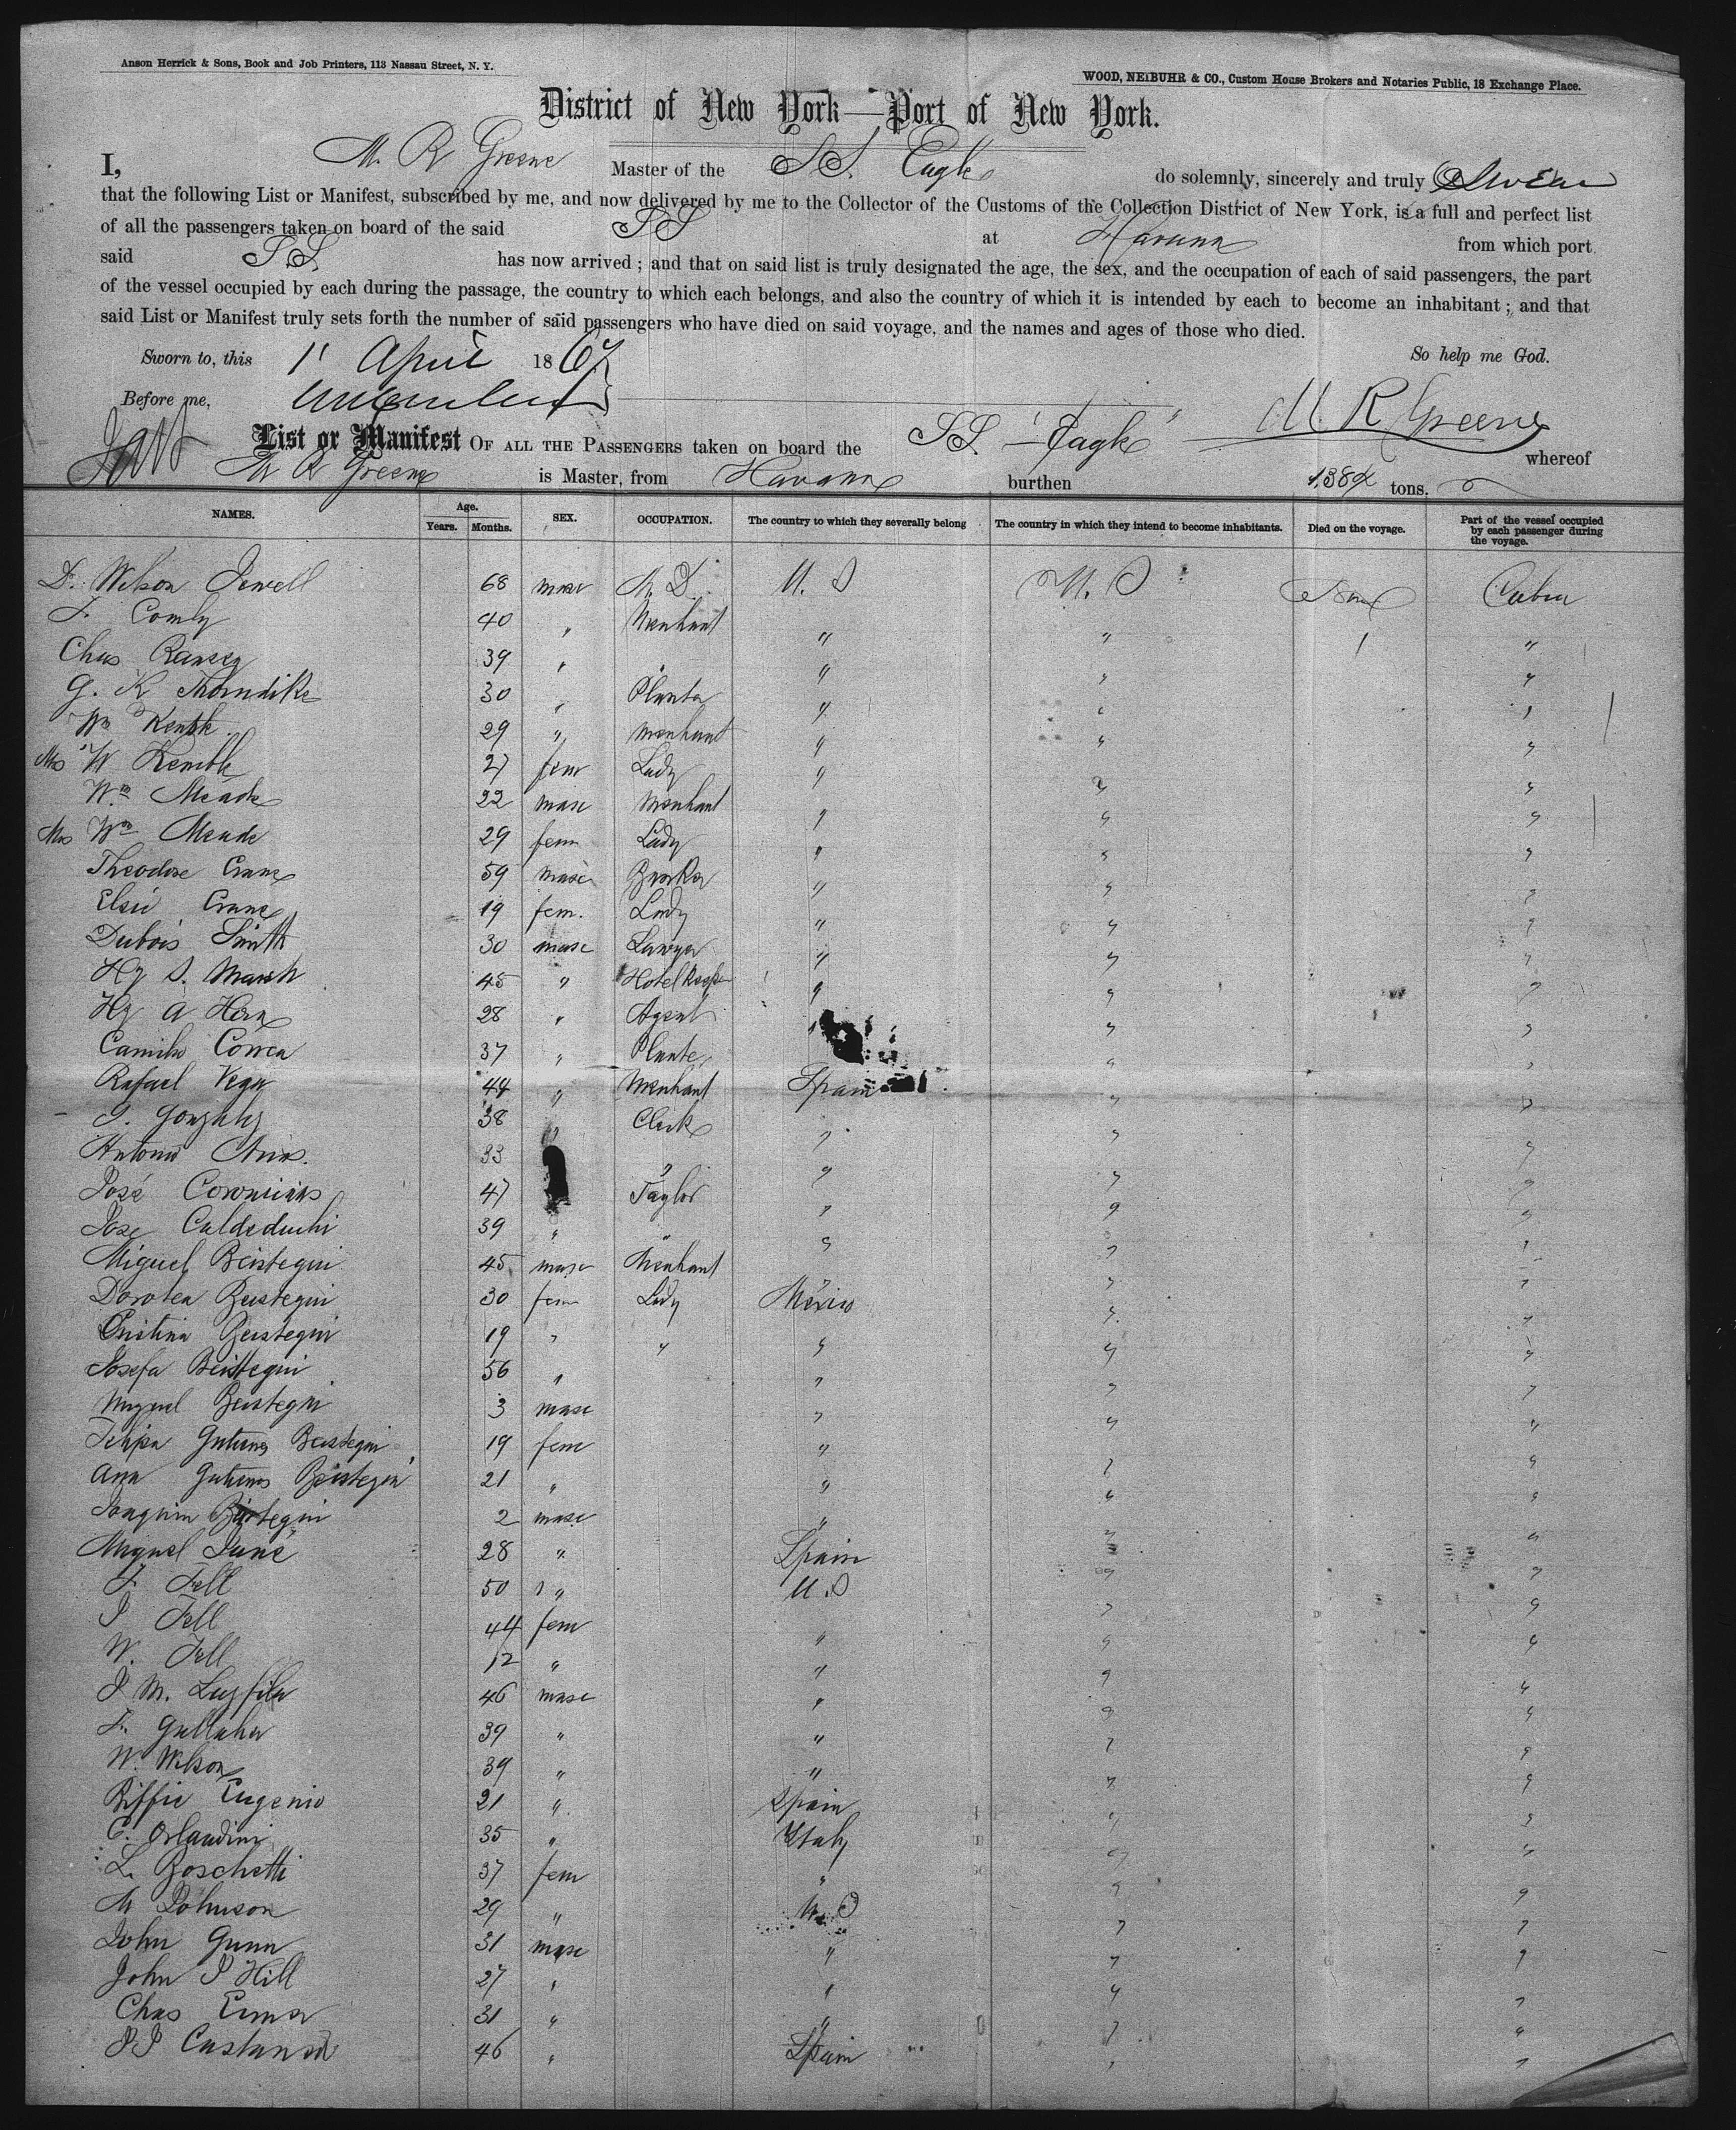 Anson Herrick & Sons, Book and Job Printers, 113 Nassau Street, N. Y.
WOOD, NEIBUHR & CO., Custom House Brokers and Notaries Public, 18 Exchange Place.
District of New York—Port of New York.
I, M. R Greene Master of the SS. Eagle do solemnly, sincerely and truly Swear
that the following List or Manifest, subscribed by me, and now delivered by me to the Collector of the Customs of the Collection District of New York, is a full and perfect list
of all the passengers taken on board of the said SS at Havana from which port
said SS. has now arrived ; and that on said list is truly designated the age, the sex, and the occupation of each of said passengers, the part
of the vessel occupied by each during the passage, the country to which each belongs, and also the country of which it is intended by each to become an inhabitant ; and that
said List or Manifest truly sets forth the number of said passengers who have died on said voyage, and the names and ages of those who died.
Sworn to, this 1' April 1867 So help me God.
Before me, M. R Greene
List or Manifest OF ALL THE PASSENGERS taken on board the SS. "Eagle" whereof
M R Greene is Master, from Havana burthen tons.
NAMES. Age. Years. Months. SEX. OCCUPATION. The country to which they severally belong The country in which they intend to become inhabitants. Died on the voyage. Part of the vessel occupied by each passenger during the voyage.
D. Wilson Jewell 68 masc M. D. U. S U. S None Cabin
F. Comly 40 " Merchant " " "
Chas Ramsey 39 " " " " "
G. K Thorndike 30 " Planter " " "
Wm Kemble 29 " Merchant " " "
Mrs W Kemble 27 fem Lady " " "
Wm Meade 22 masc Merchant " " "
Mrs Wm Meade 29 fem Lady " " "
Theodore Crane 59 masc Broker " " "
Elsie Crane 19 fem. Lady " " "
Dubois Smith 30 masc Lawyer " " "
Hy S. Marsh 45 " Hotel Keeper " " "
Hy A Hern 28 " Agent " "
Camilo Correa 37 " Planter " "
Rafael Vega 44 " Merchant Spain " "
Gonzalez 38 " Clerk " " "
Antonio 33 " " " "
José 47 Taylor " " "
Jose 39 " " " " "
Miguel Beistegui 45 masc Merchant " "
Dorotea Beistegui 30 fem Lady Mexico " "
Cristina Beistegui 19 " " " " "
Josefa Beistegui 56 " " " "
Miguel Beistegui 3 masc " " "
Beistegui 19 fem " " "
Ana Beistegui 21 " " " "
Joaquin Beistegui 2 masc " " "
Miguel 28 " Spain " "
F. Fell 50 " U. S " "
J Fell 44 fem " " "
W. Fell 12 " " " "
J M. 46 masc " " "
F. Gallaher 39 " " " "
W. Wilson 39 " " " "
Eugenio 21 " Spain " "
C. Orlandini 35 " Italy " "
L. Boschetti 37 fem " " "
M Johnson 29 " U. S " "
John Gunn 31 masc " " "
John S Hill 27 " " " "
Chas 31 " " " "
46 " Spain " "